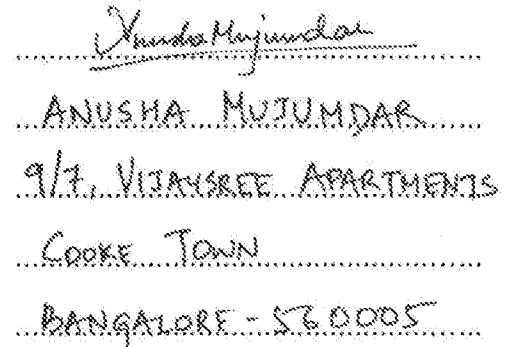 Anusha Mujumdar
ANUSHA MUJUMDAR
9/7, VIJAYSREE APARTMENTS
COOKE TOWN
BANGALORE - 560005